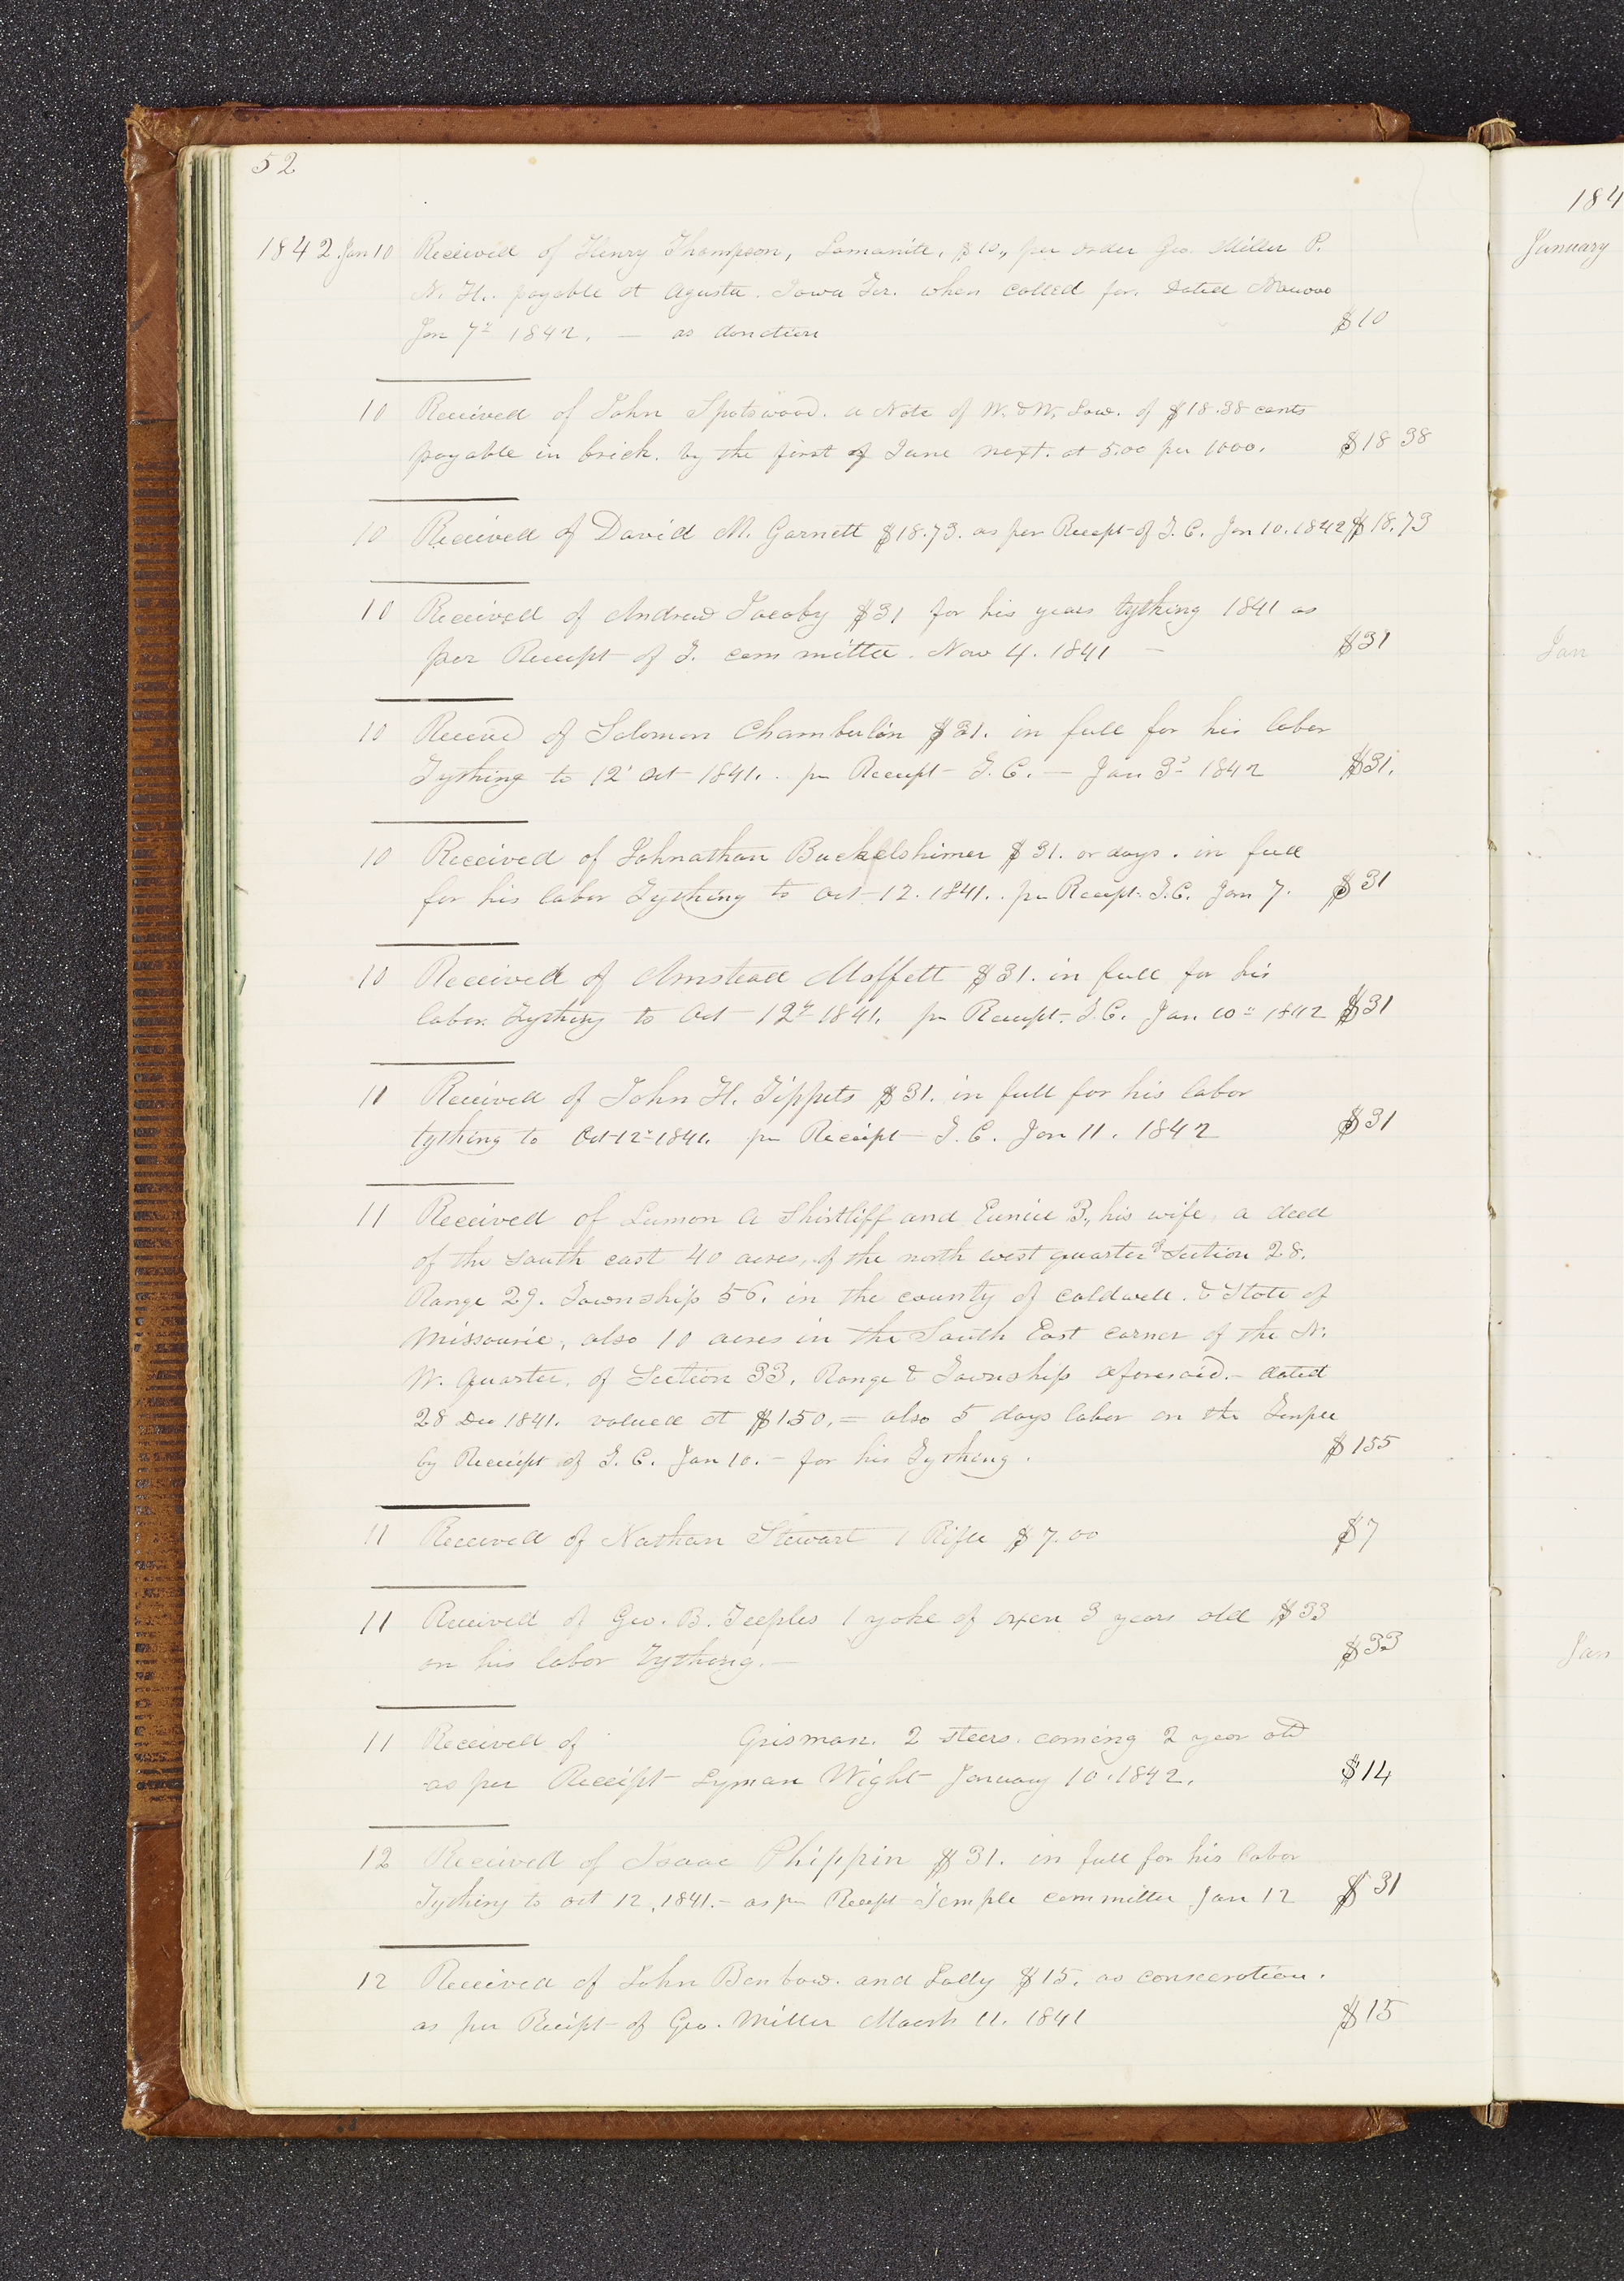 52
1842 Jan 10 Received of Henry Thompson, Lamanite, $10,, per order Geo. Miller P.
N. H.. payable at Agusta. Iowa Ter. when called for. Dated Nauvoo
Jan 7th 1842. — as donation $10
10 Received of John Spotswood. a Note of W. & W. Law. of $18.38 cents
payable in brick. by the first of June next. at 5.00 per 1000. $18 38
10 Received of David M. Garnett $18.73. as per Recept of T. C. Jan 10. 1842 $18.73
10 Received of Andrew Jacoby $31 for his years tything 1841 as
per Receipt of T. committee. Nov 4. 1841 — $31
10 Received of Solomon Chamberlin $31. in full for his labor
Tything to 12' Oct 1841. . pr Receipt T. C. — Jan 3d 1842 $31.
10 Received of Johnathan Buckelshimer $31. or days. in full
for his labor Tything to Oct 12. 1841. . pr Recept. T.C. Jan 7. $31
10 Received of Amstead Moffett $31. in full for his
labor. Tything to Oct 12th 1841. pr Receipt. T.C. Jan 10" 1842 $31
11 Received of John H. Tippets $31. in full for his labor
tything to Oct 12" 1841. pr Receipt T. C. Jan 11. 1842 $31
11 Received of Lumon A Shirtliff and Eunice B,, his wife, a deed
of the South east 40 acres, of the north west quarter of Section 28.
Range 29. Township 56. in the county of Caldwell. & State of
Missourie, also 10 acres in the South East corner of the N.
W. Quarter. of Section 33, Range & Township aforesaid. — dated
28 Dec 1841. valued at $150. = also 5 days labor on the Temple
by Receipt of T. C. Jan 10. — for his Tything. $155
11 Received of Nathan Stewart 1 Rifle $7.00 $7
11 Received of Geo. B. Teeples 1 yoke of oxen 3 years old $33
on his labor Tything. — $33
11 Received of Grisman. 2 steers. coming 2 year old
as per Receipt Lyman Wight January 10. 1842. $14
12 Received of Isaac Phippin $31. in full for his labor
Tything to Oct 12, 1841. — as pr Recept Temple committee Jan 12 $31
12 Received of John Benbow. and Lady $15. as consecration.
as per Receipt of Geo. Miller March 11. 1841 $15
184
January
Jan
Jan